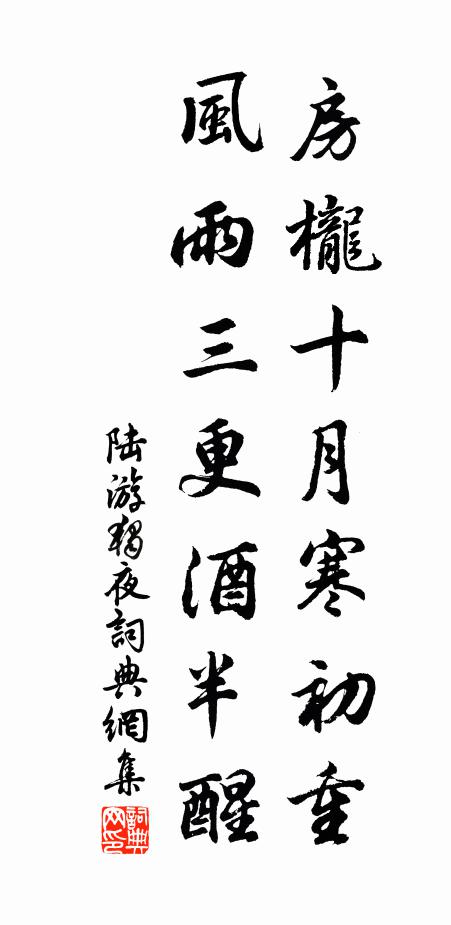 房櫳十月寒初重
風雨三更酒半醒
陆游獨夜詞典網集
詞典网印